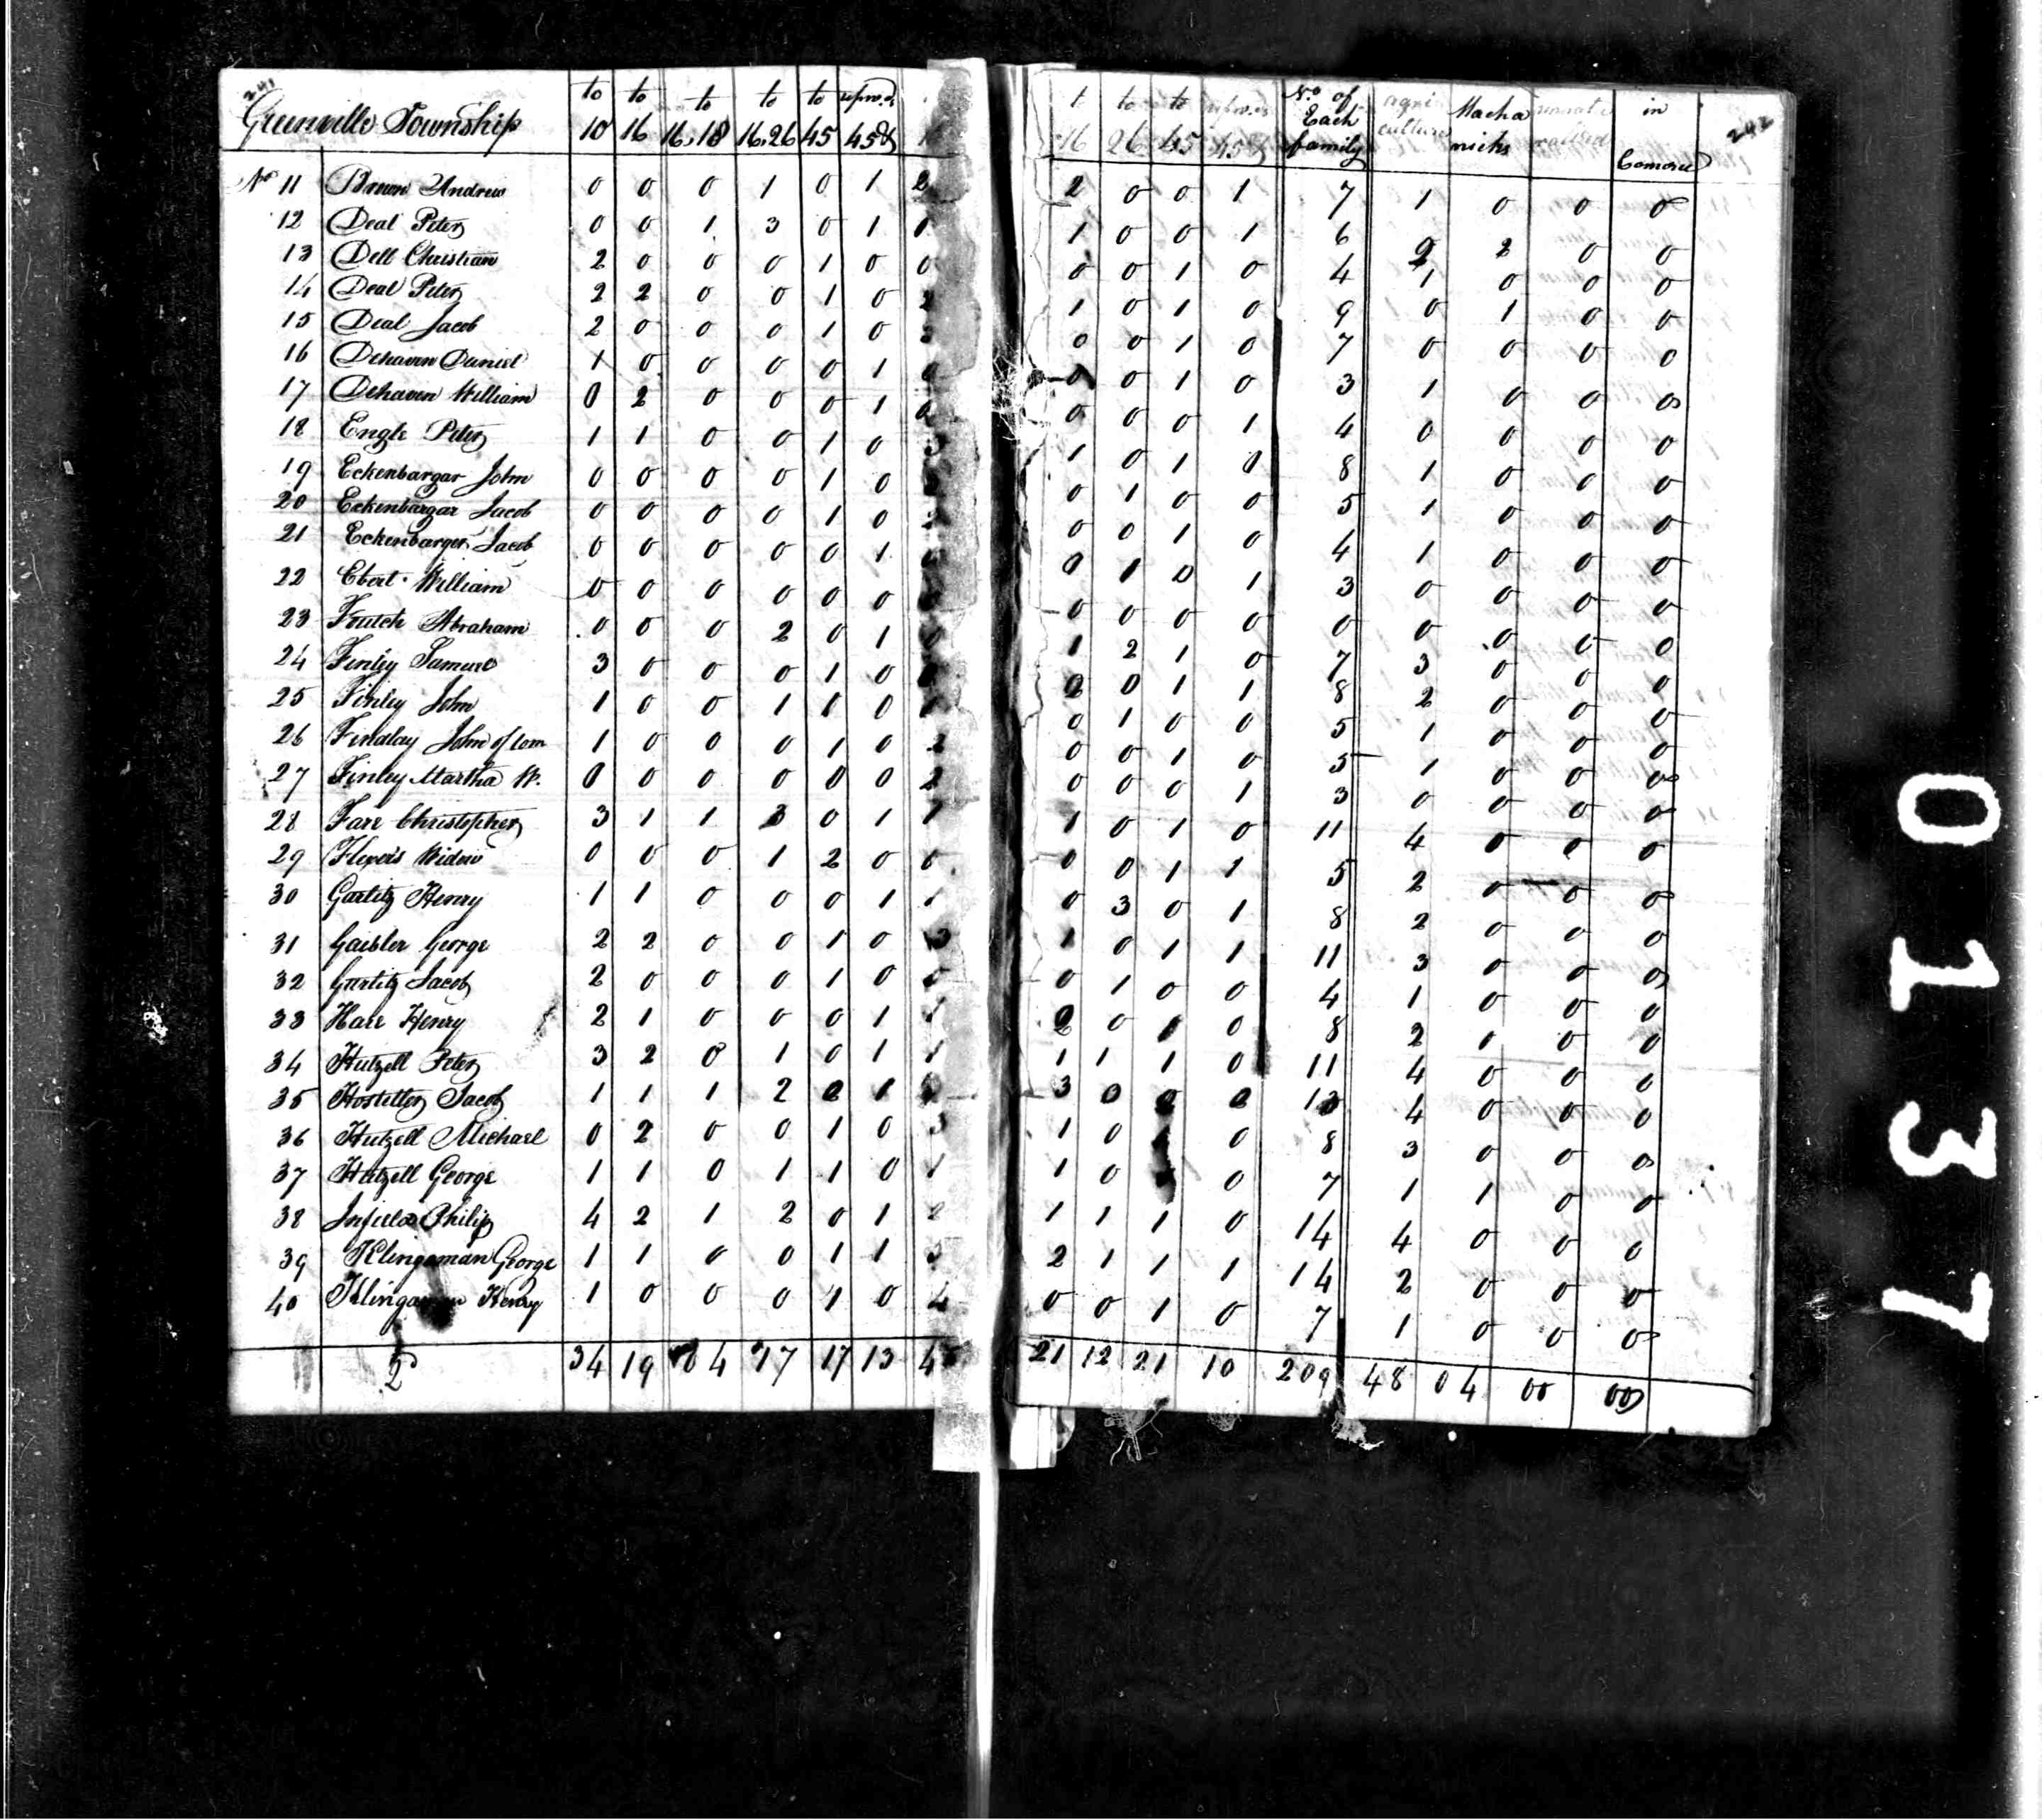 241
Greenville Township to 10 to 16 to 16,18 to 16,26 to 45 upwds 45& to 16 to 26 to 45 upwds 45& No. of Each family agri culture Macha nicks in Comorce 242
No 11 Brown Andrew 0 0 0 1 0 1 2 2 0 0 1 7 1 0 0 0
12 Deal Peter 0 0 1 3 0 1 1 1 0 0 1 6 2 2 0 0
13 Dell Christian 2 0 0 0 1 0 0 0 0 1 0 4 1 0 0 0
14 Deal Peter 2 2 0 0 1 0 2 1 0 1 0 9 0 1 0 0
15 Deal Jacob 2 0 0 0 1 0 0 0 1 0 7 0 0 0 0
16 Dehaven Daniel 1 0 0 0 0 1 0 0 0 1 0 3 1 0 0 0
17 Dehaven William 0 2 0 0 0 1 0 0 0 0 1 4 0 0 0 0
18 Engle Peter 1 1 0 0 1 0 3 1 0 1 0 8 1 0 0 0
19 Eckenbargar John 0 0 0 0 1 0 0 1 0 0 5 1 0 0 0
20 Eckenbargar Jacob 0 0 0 0 1 0 0 0 1 0 4 1 0 0 0
21 Eckenbarger Jacob 0 0 0 0 0 1 0 0 1 0 1 3 0 0 0 0
22 Ebert William 0 0 0 0 0 0 0 0 0 0 0 0 0 0 0
23 Foutch Abraham 0 0 0 2 0 1 0 1 2 1 0 7 3 0 0 0
24 Finley Samuel 3 0 0 0 1 0 0 2 0 1 1 8 2 0 0 0
25 Finley John 1 0 0 1 1 0 0 1 0 0 5 1 0 0 0
26 Findlay John of Tom 1 0 0 0 1 0 2 0 0 1 0 5 1 0 0 0
27 Finley Martha W. 0 0 0 0 0 0 2 0 0 0 1 3 0 0 0 0
28 Fare Christopher 3 1 1 3 0 1 1 1 0 1 0 11 4 0 0 0
29 Widow 0 0 0 1 2 0 0 0 0 1 1 5 2 0 0 0
30 Garlitz Henry 1 1 0 0 0 1 1 0 3 0 1 8 2 0 0 0
31 Gaibler George 2 2 0 0 1 0 3 1 0 1 1 11 3 0 0 0
32 Garlitz Jacob 2 0 0 0 1 0 0 0 1 0 0 4 1 0 0 0
33 Hare Henry 2 1 0 0 0 1 1 2 0 1 0 8 2 0 0 0
34 Hutzell Peter 3 2 0 1 0 1 1 1 1 1 0 11 4 0 0 0
35 Hostetter Jacob 1 1 1 2 0 1 3 0 13 4 0 0 0
36 Hutzell Michael 0 2 0 0 1 0 3 1 0 0 8 3 0 0 0
37 Hutzell George 1 1 0 1 1 0 1 1 0 0 7 1 1 0 0
38 Infield Philip 4 2 1 2 0 1 2 1 1 1 0 14 4 0 0 0
39 Klingaman George 1 1 0 0 1 1 5 2 1 1 1 14 2 0 0 0
40 Klingaman Henry 1 0 0 0 1 0 4 0 0 1 0 7 1 0 0 0
2 34 19 04 17 17 13 4 21 12 21 10 209 48 04 00 00
0137